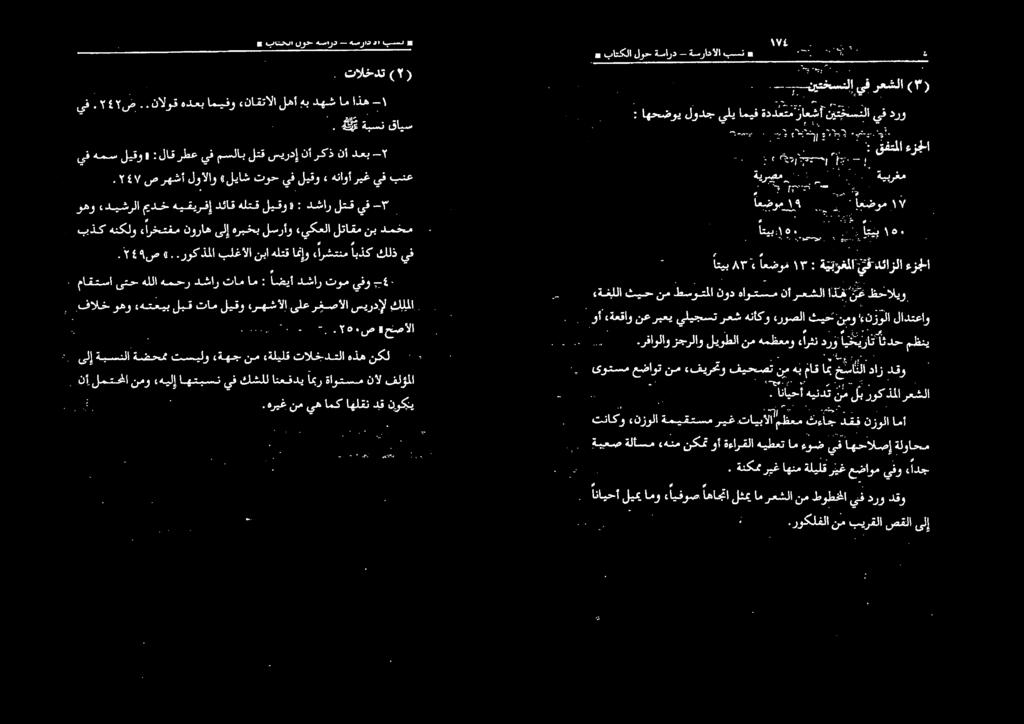 ١٧٤
■ نسب الأدارسة – دراسة حول الكتاب ■
(٣) الشعر في النسختين
ورد في النسختين أشعار متعددة فيما يلي جدول يوضحها :
الجزء المتفق :
مغربية مصرية
١٧ موضعاً ١٩ موضعاً
١٥٠ بيتاً ١٥٠ بيتاً
الجزء الزائد في المغربية : ١٣ موضعاً ، ٨٣ بيتاً
ويلاحظ عن هذا الشعر أن مستواه دون المتوسط من حيث اللغة،
واعتدال الوزن، ومن حيث الصور، وكأنه شعر تسجيلي يعبر عن واقعة، أو
ينظم حدثاً تاريخياً ورد نثراً، ومعظمه من الطويل والرجز والوافر.
وقد زاد النَّاسخ بما قام به من تصحيف وتحريف، من تواضع مستوى
الشعر المذكور بل من تدنيه أحياناً.
أما الوزن فقد جاءت معظم الأبيات غير مستقيمة الوزن، وكانت
محاولة إصلاحها في ضوء ما تعطيه القراءة أو تمكن منه، مسألة صعبة
جداً، وفي مواضع غير قليلة منها غير ممكنة .
وقد ورد في المخطوط من الشعر ما يمثل اتجاهاً صوفياً، وما يميل أحياناً
إلى القص القريب من الفلكور.
■ نسب الأدارسة – دراسة حول الكتاب ■
(٢) تدخلات
١– هذا ما شهد به أهل الاتقان، وفيما بعده قولان.. ص٢٤٢. في
سياق نسبة ﷺ .
٢– بعد أن ذكر أن إدريس قتل بالسم في عطر قال: «وقيل سمه في
عنب في غير أوانه ، وقيل في حوت شابل» والأول أشهر ص ٢٤٧.
٣– في قتل راشد : «وقيل قتله قائد إفريقيه خديم الرشيد، وهو
محمد بن مقاتل العكي، وأرسل بخبره إلى هارون مفتخراً، ولكنه كذب
في ذلك كذباً منتشراً، وإنما قتله ابن الأغلب المذكور.. » ص٢٤٩.
٤– وفي موت راشد أيضاً : ما مات راشد رحمه الله حتى استقام
الملك لإدريس الأصغر على الأشهر، وقيل مات قبل بيعته، وهو خلاف
الأصح» ص٢٥٠.
لكن هذه التدخلات قليلة، من جهة، وليست ممحضة النسبة إلى
المؤلف لأن مستواة ربما يدفعنا للشك في نسبتها إليه، ومن المحتمل أن
يكون قد نقلها كما هي من غيره.